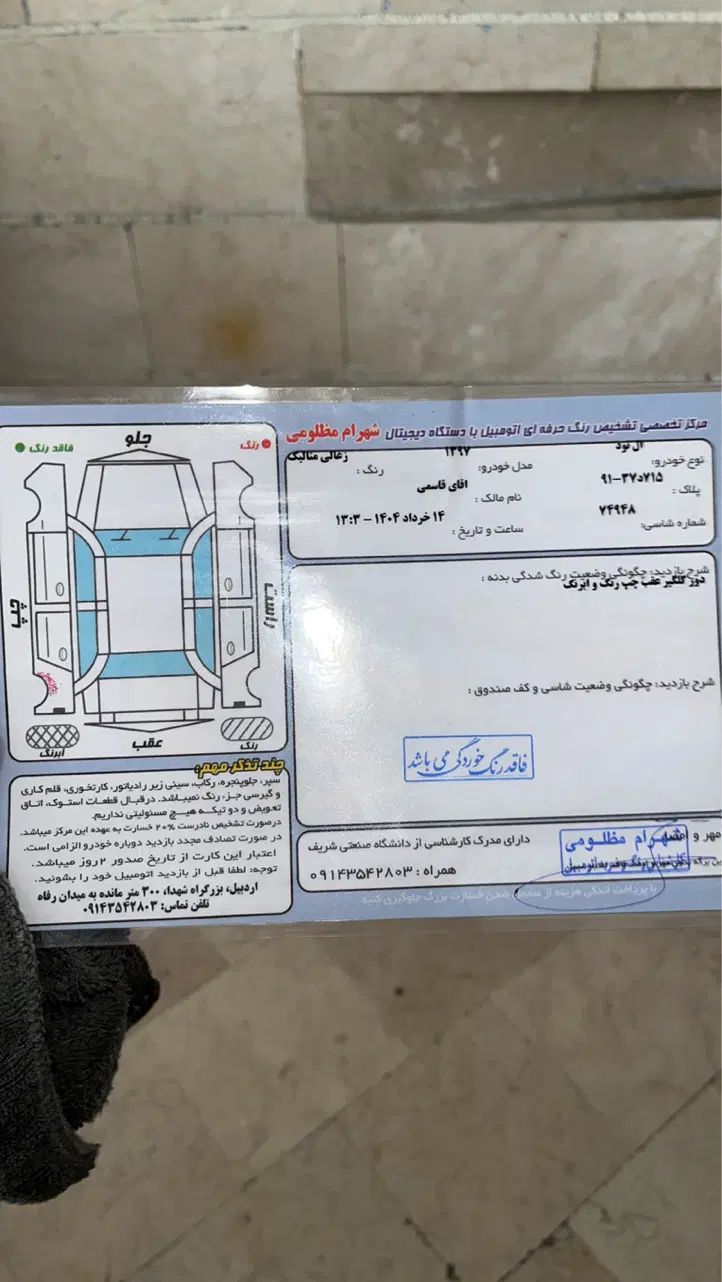 مرکز تخصصی تشخیص رنگ حرفه ای اتومبیل با دستگاه دیجیتال شهرام مظلومی
نوع خودرو: ال نود
مدل خودرو: ۱۳۹۷
رنگ : زغالی متالیک
پلاک : ۹۱-۳۷د۷۱۵
نام مالک : اقای قاسمی
شماره شاسی: ۷۴۹۴۸
ساعت و تاریخ : ۱۴ خرداد ۱۴۰۴ - ۱۳:۳
شرح بازدید: چگونگی وضعیت رنگ شدگی بدنه :
دور گلگیر عقب چپ رنگ و ابرنگ
شرح بازدید: چگونگی وضعیت شاسی و کف صندوق :
فاقد رنگ خوردگی می باشد
مهر و امضا
شهرام مظلومی
دارای مدرک کارشناسی از دانشگاه صنعتی شریف
همراه : ۰۹۱۴۳۵۴۲۸۰۳
با پرداخت اندکی هزینه از متحمل شدن خسارت بزرگ جلوگیری کنید
رنگ
جلو
فاقد رنگ
راست
چپ
رنگ
عقب
آبرنگ
چند تذکر مهم:
سپر، جلوپنجره، رکاب، سینی زیر رادیاتور، کارتخوری، قلم کاری
و گیرسی جزء رنگ نمیباشد. درقبال قطعات استوک، اتاق
تعویض و دو تیکه هیچ مسئولیتی نداریم.
درصورت تشخیص نادرست ۲۰% خسارت به عهده این مرکز میباشد.
در صورت تصادف مجدد بازدید دوباره خودرو الزامی است.
اعتبار این کارت از تاریخ صدور ۲ روز میباشد.
توجه: لطفا قبل از بازدید اتومبیل خود را بشوئید.
اردبیل، بزرگراه شهدا، ۳۰۰ متر مانده به میدان رفاه
تلفن تماس: ۰۹۱۴۳۵۴۲۸۰۳